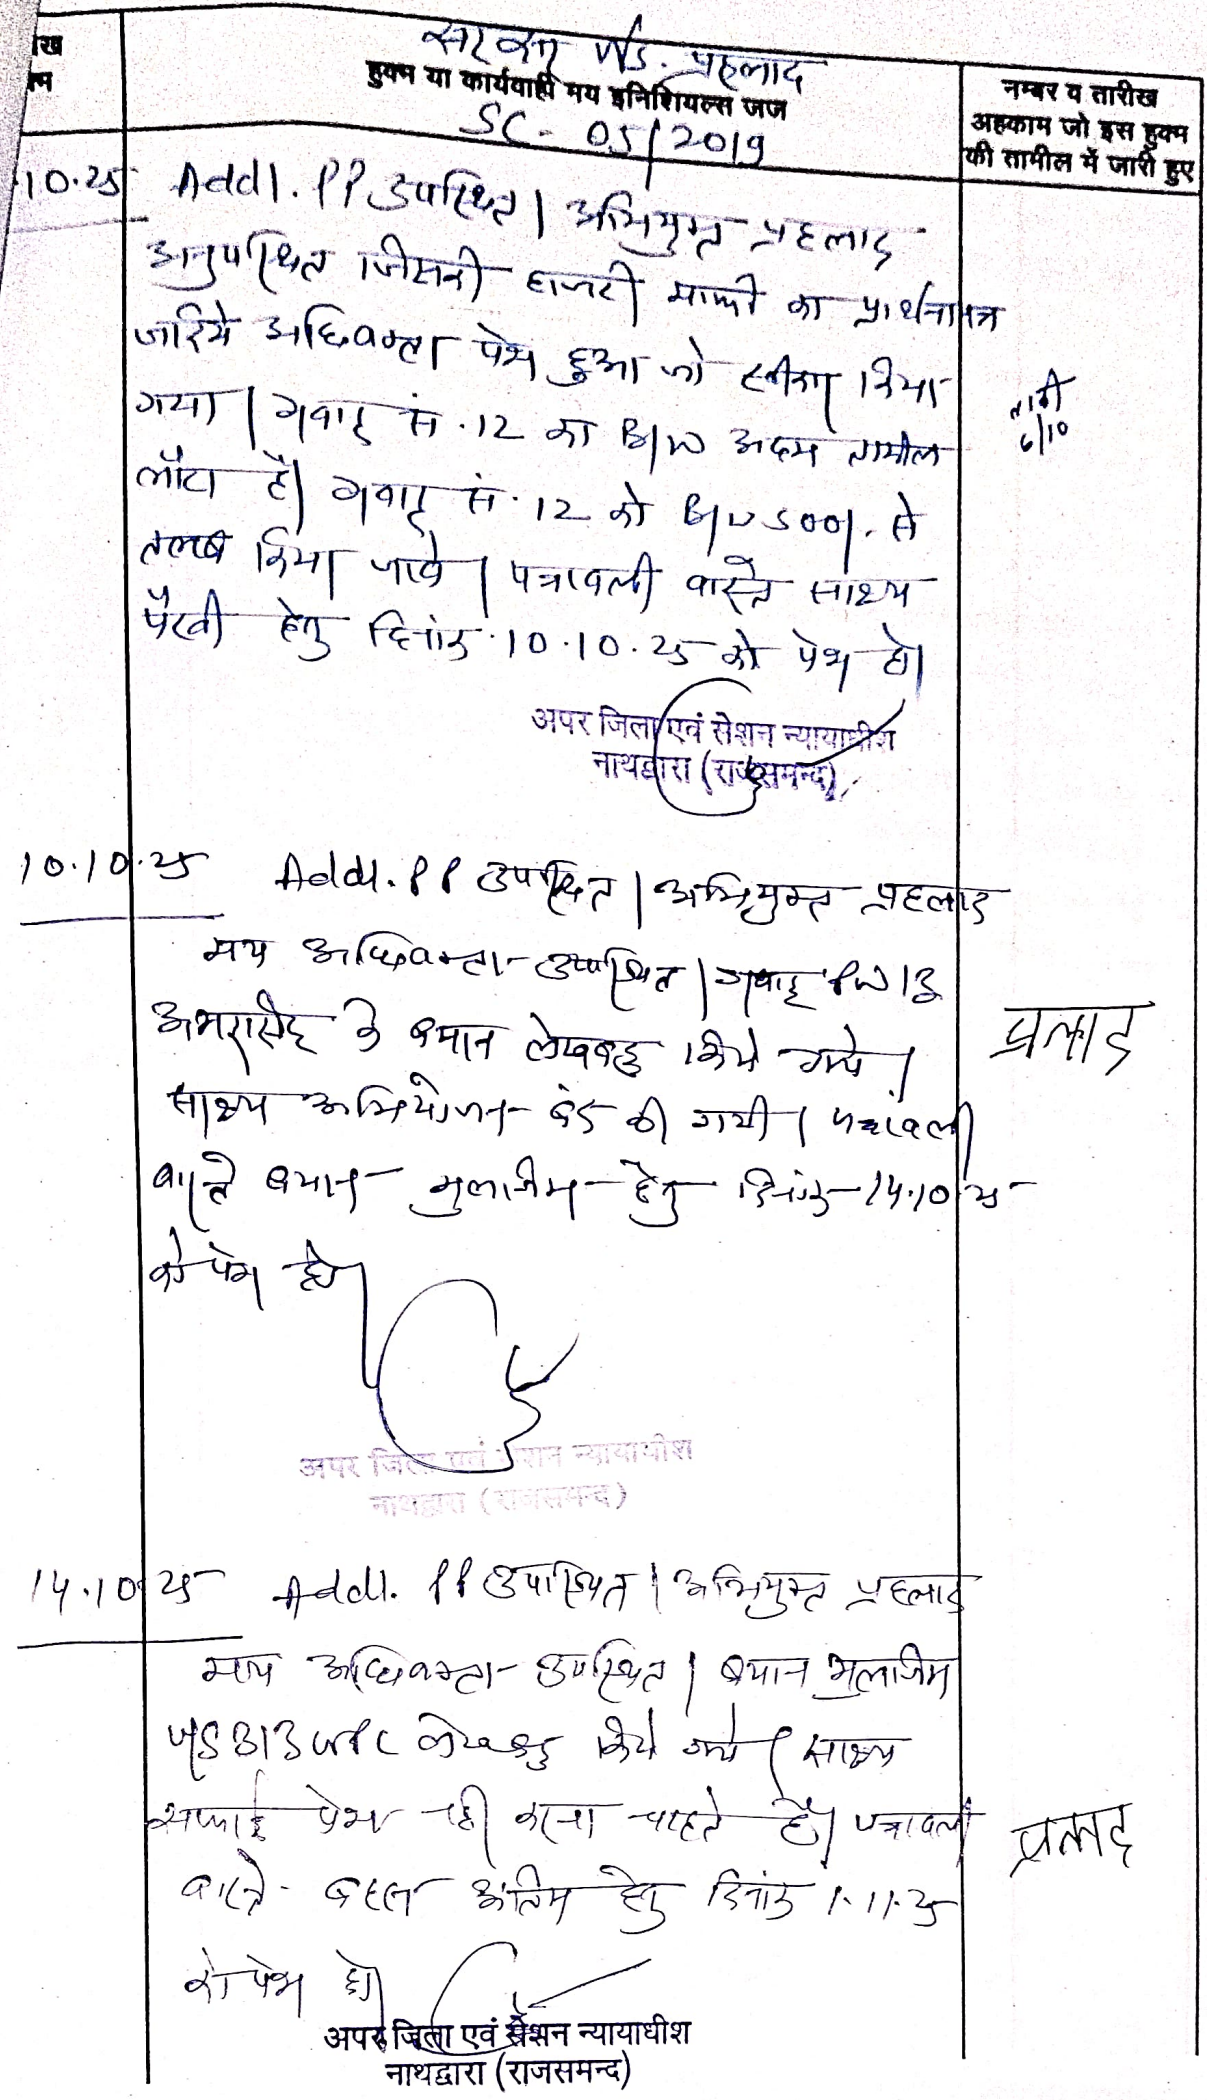 सरकार V/S. प्रहलाद
हुक्म या कार्यवाही मय इनिशियल्स जज
SC - 05/2019
नम्बर व तारीख
अहकाम जो इस हुक्म
की तामील में जारी हुए
10.25 Addl. PP उपस्थित। अभियुक्त प्रहलाद
अनुपस्थित जिसकी हाजरी माफी का प्रार्थनापत्र
जरिये अधिवक्ता पेश हुआ जो स्वीकार किया
गया। गवाह सं. 12 का B/W अदम तामील
लौटा है। गवाह सं. 12 को B/W 500/- से
तलब किया जावे। पत्रावली वास्ते साक्ष्य
पैरवी हेतु दिनांक 10.10.25 को पेश हो।
जारी
6/10
अपर जिला एवं सेशन न्यायाधीश
नाथद्वारा (राजसमन्द)
10.10.25 Addl. PP उपस्थित। अभियुक्त प्रहलाद
मय अधिवक्ता उपस्थित। गवाह PW 13
अमरसिंह के बयान लेखबद्ध किये गये।
साक्ष्य अभियोजन बंद की गयी। पत्रावली
वास्ते बयान मुलजिम हेतु दिनांक 14.10.25
को पेश हो।
प्रलाद
अपर जिला एवं सेशन न्यायाधीश
नाथद्वारा (राजसमन्द)
14.10.25 Addl. PP उपस्थित। अभियुक्त प्रहलाद
मय अधिवक्ता उपस्थित। बयान मुलजिम
313 लेखबद्ध किये गये। साक्ष्य
सफाई पेश नहीं करना चाहते हैं। पत्रावली
वास्ते बहस अंतिम हेतु दिनांक 1.11.25
को पेश हो।
प्रलाद
अपर जिला एवं सेशन न्यायाधीश
नाथद्वारा (राजसमन्द)